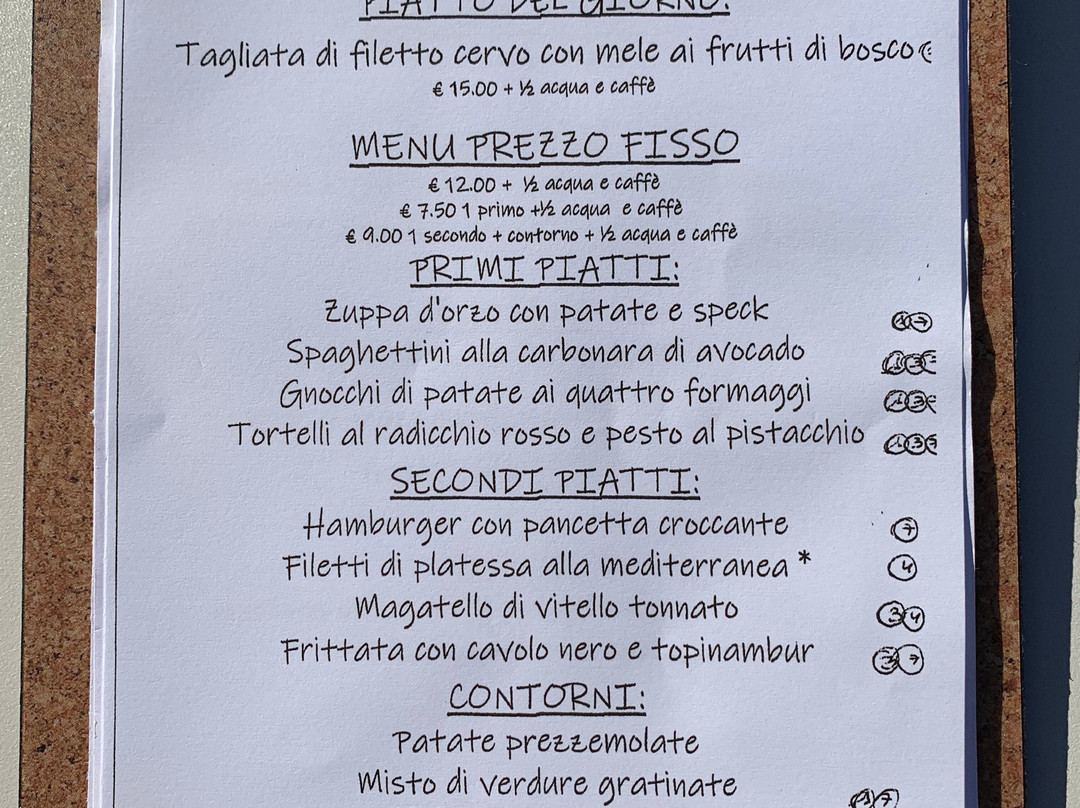 PIATTO DEL GIORNO:
Tagliata di filetto cervo con mele ai frutti di bosco
€ 15.00 + ½ acqua e caffè
MENU PREZZO FISSO
€ 12.00 + ½ acqua e caffè
€ 7.50 1 primo +½ acqua e caffè
€ 9.00 1 secondo + contorno + ½ acqua e caffè
PRIMI PIATTI:
Zuppa d'orzo con patate e speck 1 7
Spaghettini alla carbonara di avocado 1 3
Gnocchi di patate ai quattro formaggi 1 3
Tortelli al radicchio rosso e pesto al pistacchio 1 3
SECONDI PIATTI:
Hamburger con pancetta croccante 7
Filetti di platessa alla mediterranea * 4
Magatello di vitello tonnato 3 4
Frittata con cavolo nero e topinambur 3 7
CONTORNI:
Patate prezzemolate
Misto di verdure gratinate 1 7